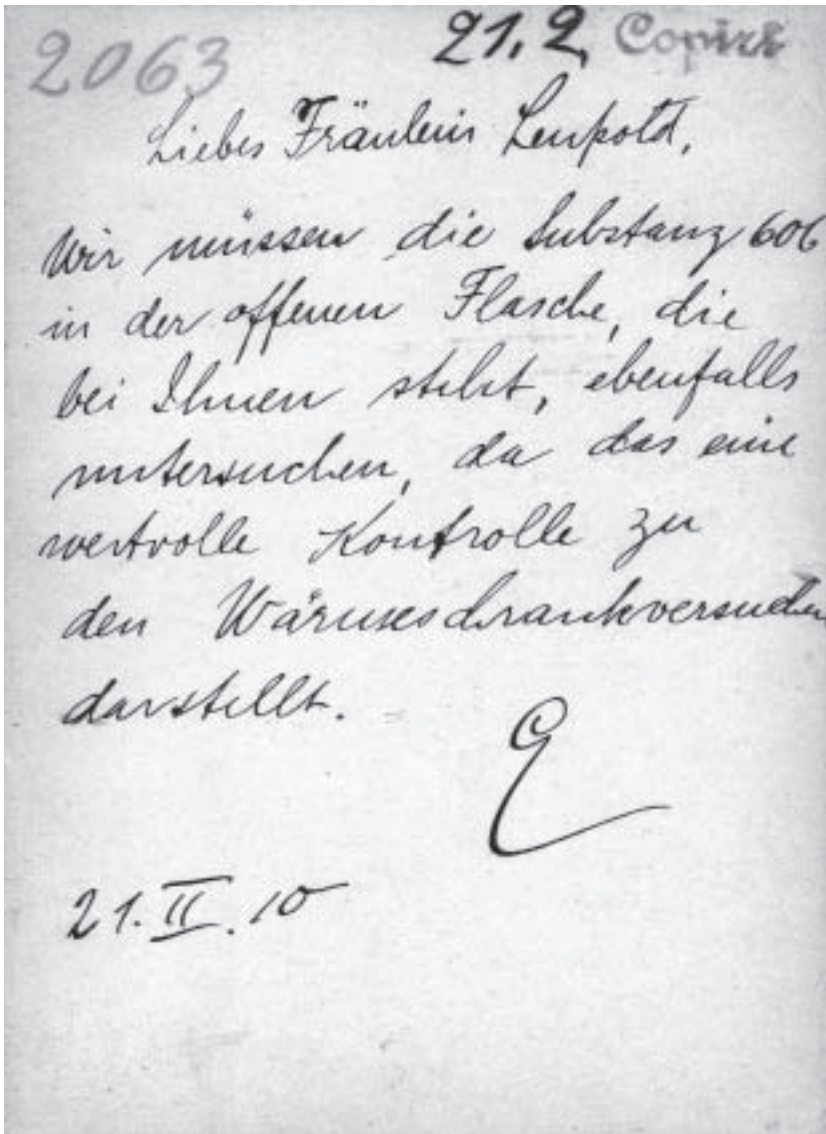 2063 21.2. Copirt
Liebes Fräulein Leupold,
Wir müssen die Substanz 606
in der offenen Flasche, die
bei Ihnen steht, ebenfalls
untersuchen, da das eine
wertvolle Kontrolle zu
den Wärmeschrankversuchen
darstellt.
E
21.II.10